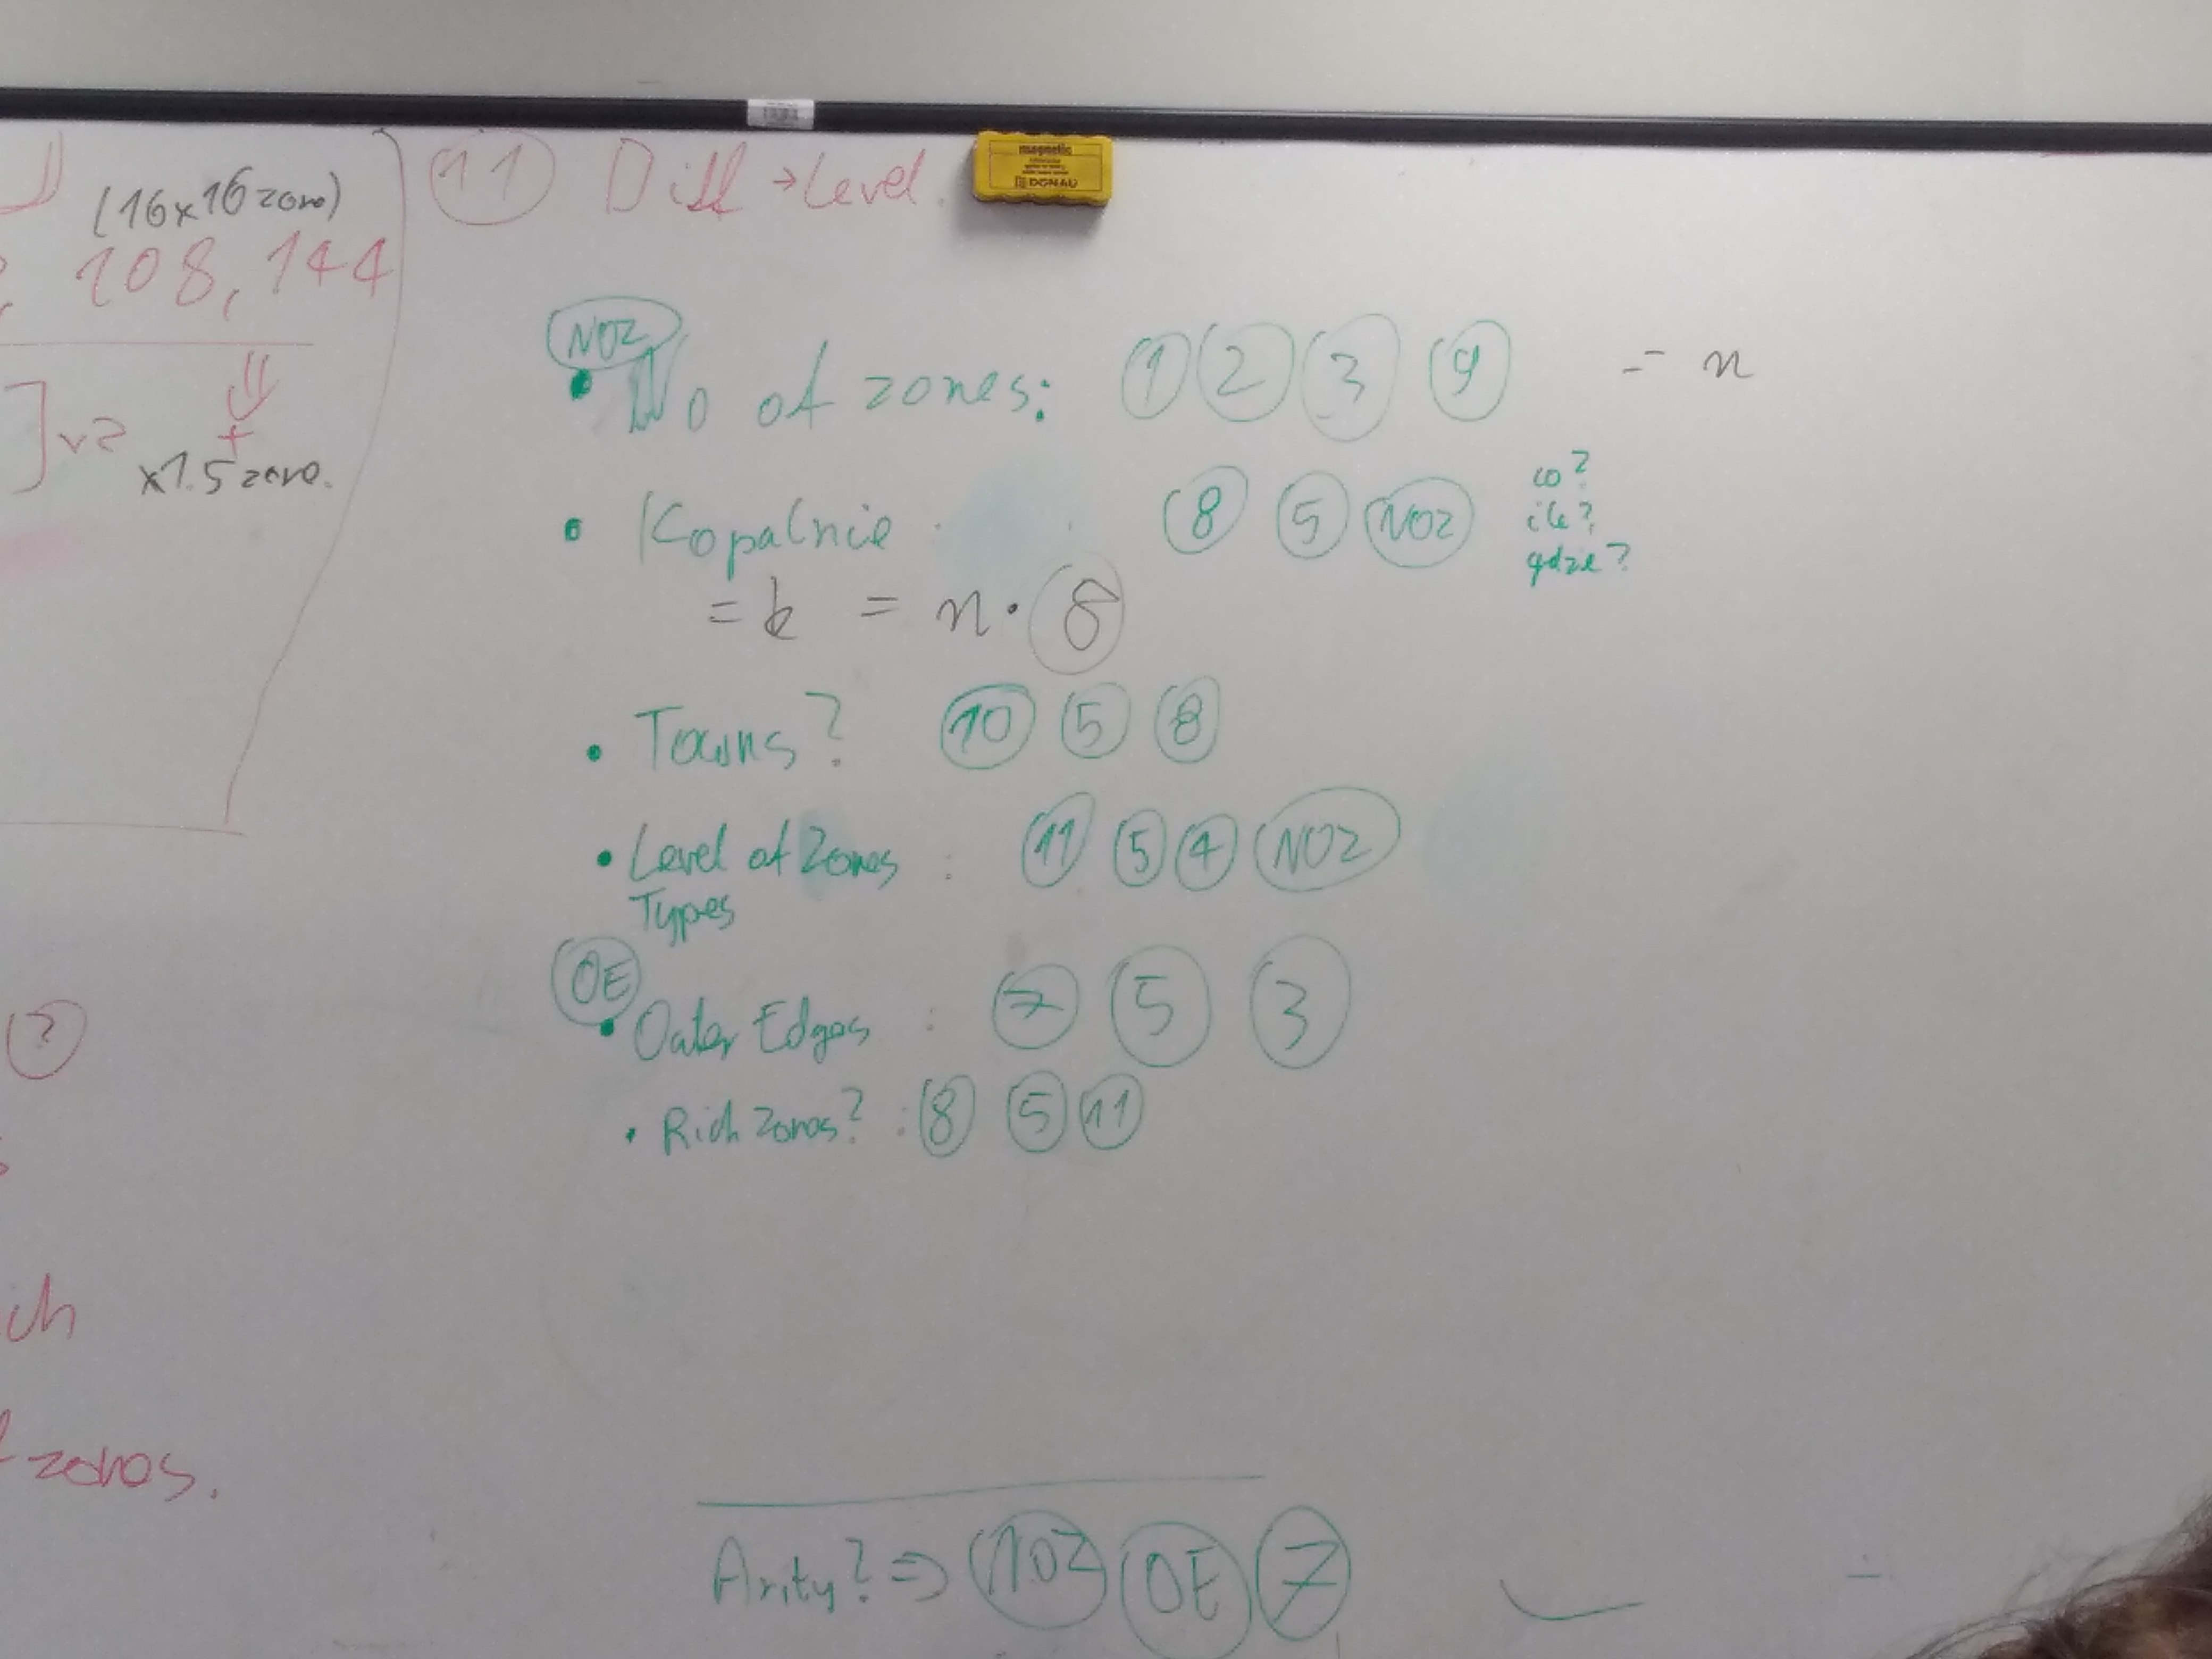 (16x16 zone)
108, 144
v2
+
x1.5 zone.
?
ich
zones.
11 Diff → Level.
magnetic
DONAU
NOZ
• No of zones: 1 2 3 9 = n
• Kopalnie : 8 5 NOZ
co?
ile?
gdzie?
= k = n · 8
• Towns? 10 5 8
• Level of Zones : 11 5 4 NOZ
Types
OE
• Outer Edges : 7 5 3
• Rich Zones? : 8 5 11
Arity? => NOZ OE 7